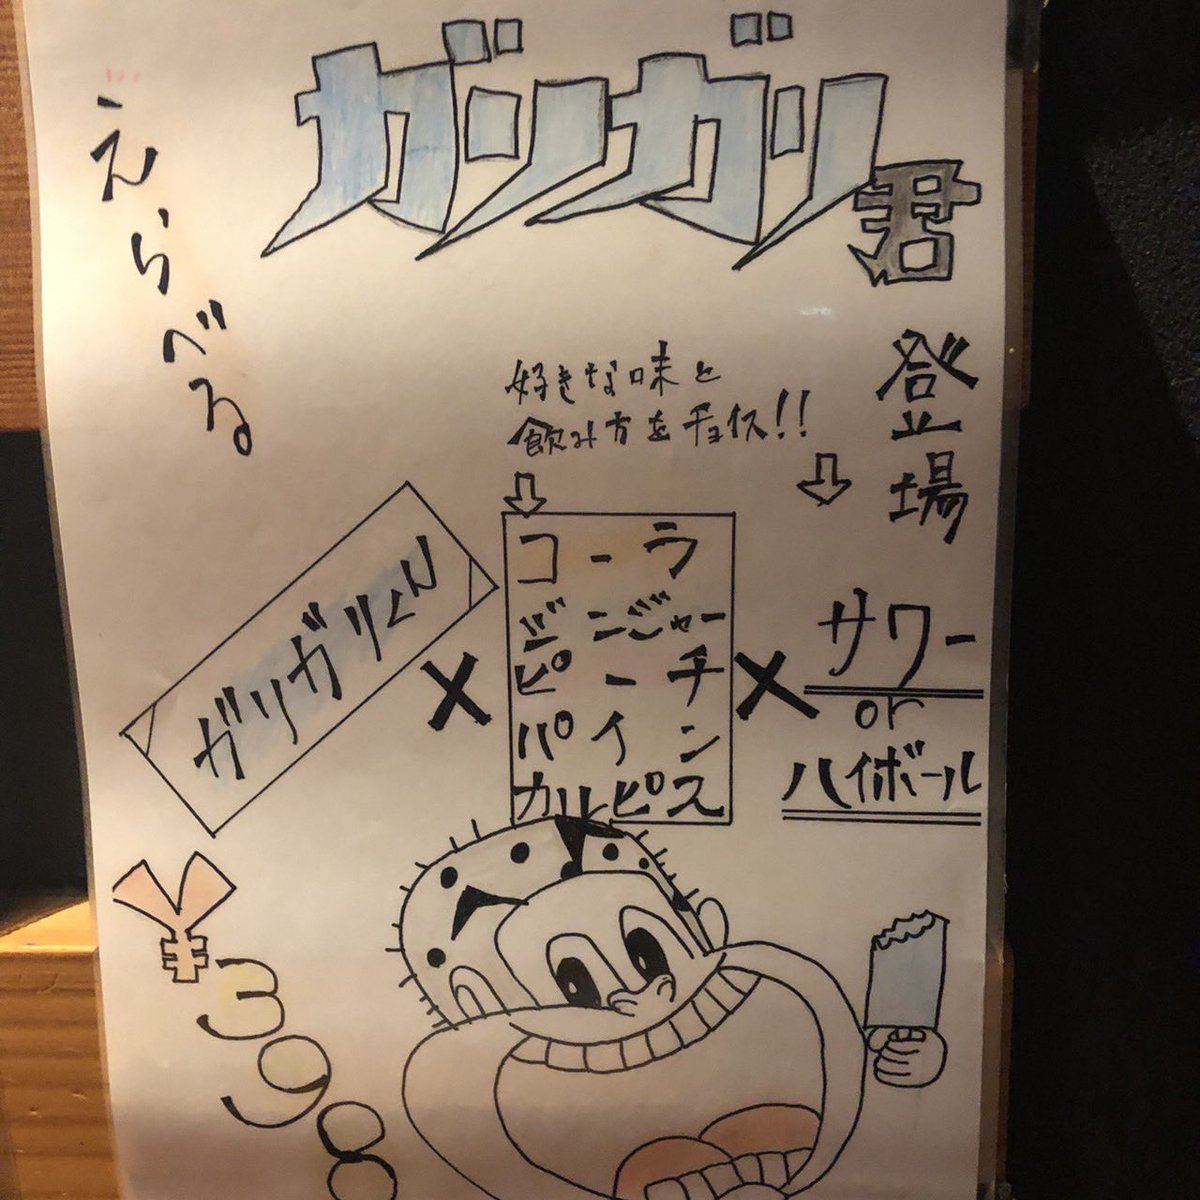 えらべる
ガリガリ君
登場
好きな味と
飲み方をチョイス!!
ガリガリくん
×
コーラ
ジンジャー
ピーチ
パイン
カルピス
×
サワー
or
ハイボール
¥398